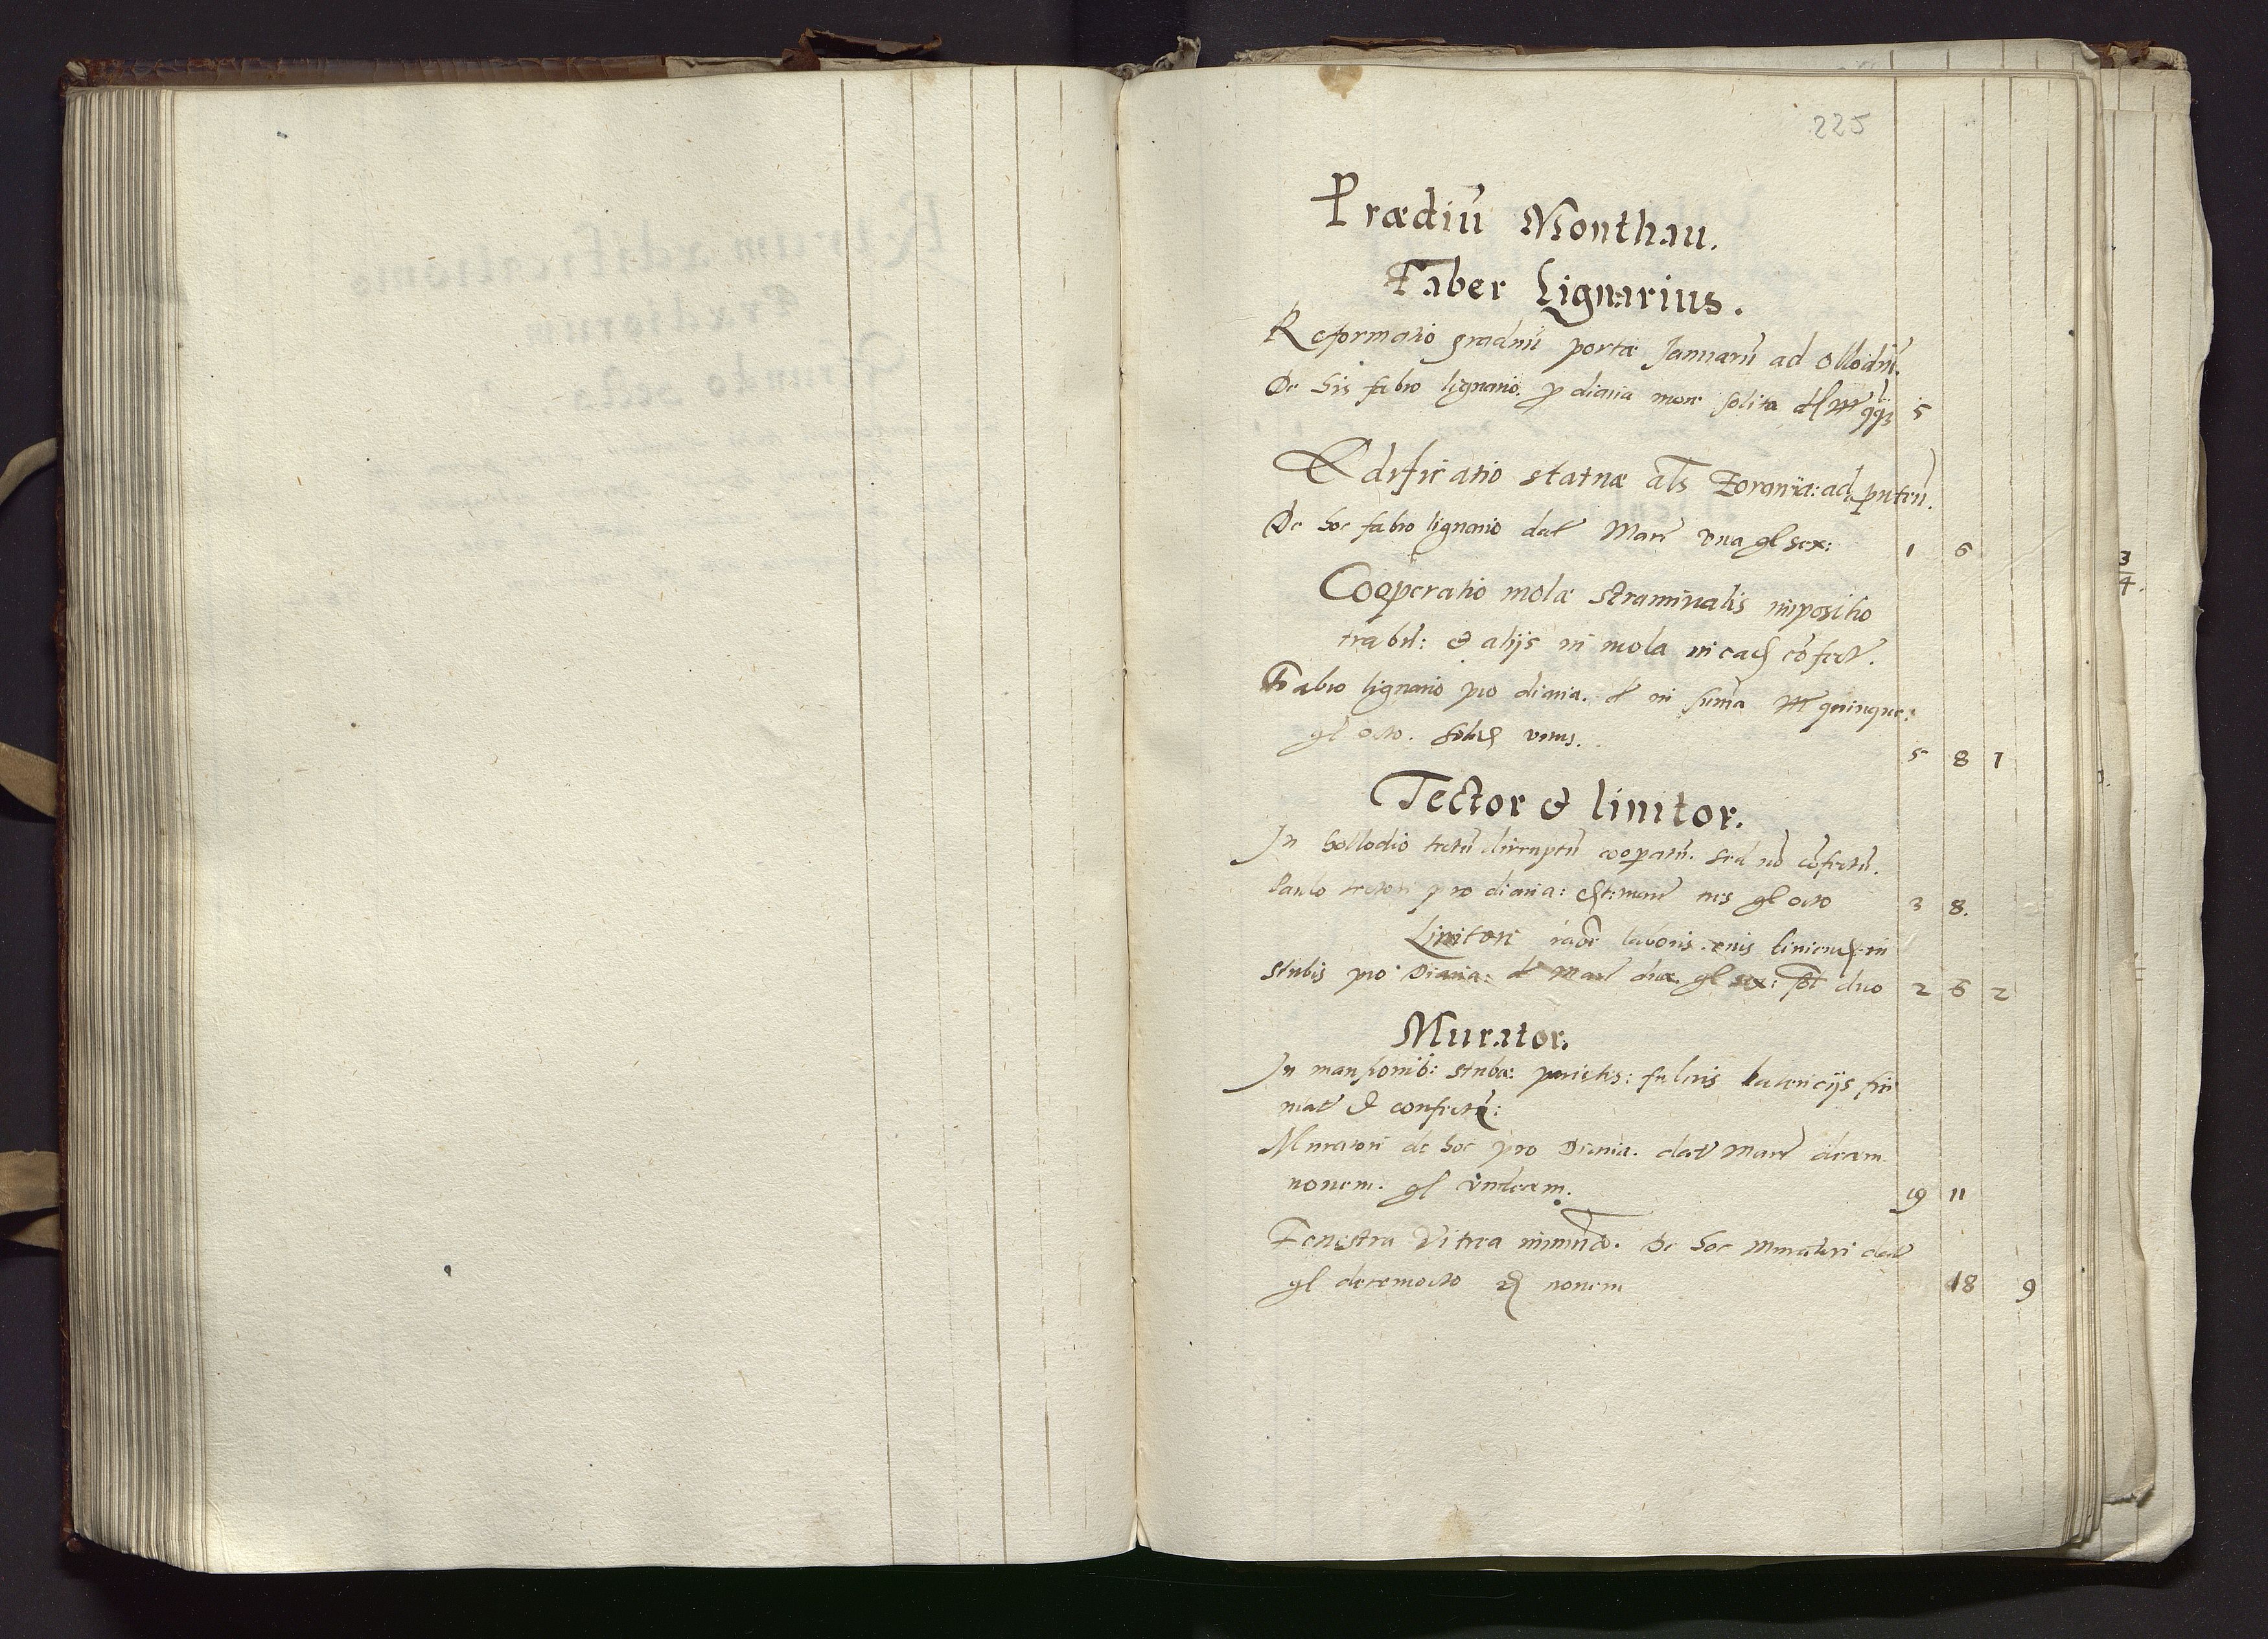 225
Prædiū Monthau.
Faber Lignarius.
Reformatio graduū portæ Januarū ad ollodiū.
De his fabro lignario. p diaria more solita dt mr qq3 5
Edificatio statuæ als Zorawia: ad puteū.
De hoc fabro lignario dat Marc vna gl sex: 1 6
Cooperatio molæ straminalis impositio
trabiū: & alijs in mola confect.
Fabro lignario pro diaria. dt in suma mr quinque:
gl octo. solid vnus. 5 8 1
Tector & linitor.
In hollodio tectū dirruptū coopatū. sed nō cōfectū.
Paulo tectori pro diaria: marc tres gl octo 3 8.
Linitori laboris. eius in
stubis pro Diaria: dt Marc duæ gl sex: sol duo 2 6 2
Murator.
In mansionib: stubæ: parietis: fulcris latericijs fir
mat & confectū:
Muratori de hoc pro Diaria. dat Marc decem
nouem. gl vndecim. 19 11
Fenestra Vitrea De hoc Muratori dat
gl decemocto nouem 18 9